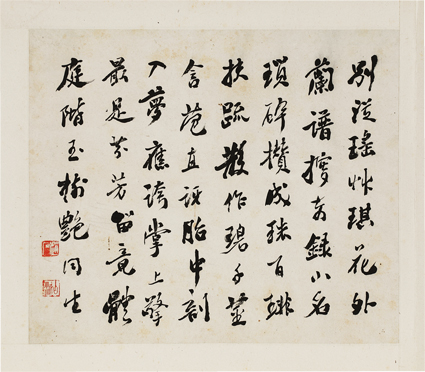 別從瑤艸琪花外
蘭譜奇錄小名
瑣碎攢成珠百琲
扶疏散作碧千莖
含葩直訝胎中剖
入夢應誇掌上擎
最是芬芳留竟體
庭階玉樹艷同生